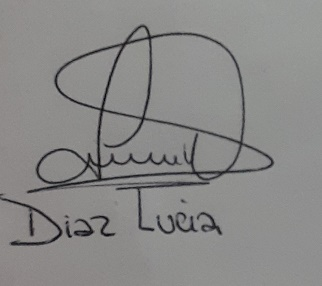 Diaz Lucia